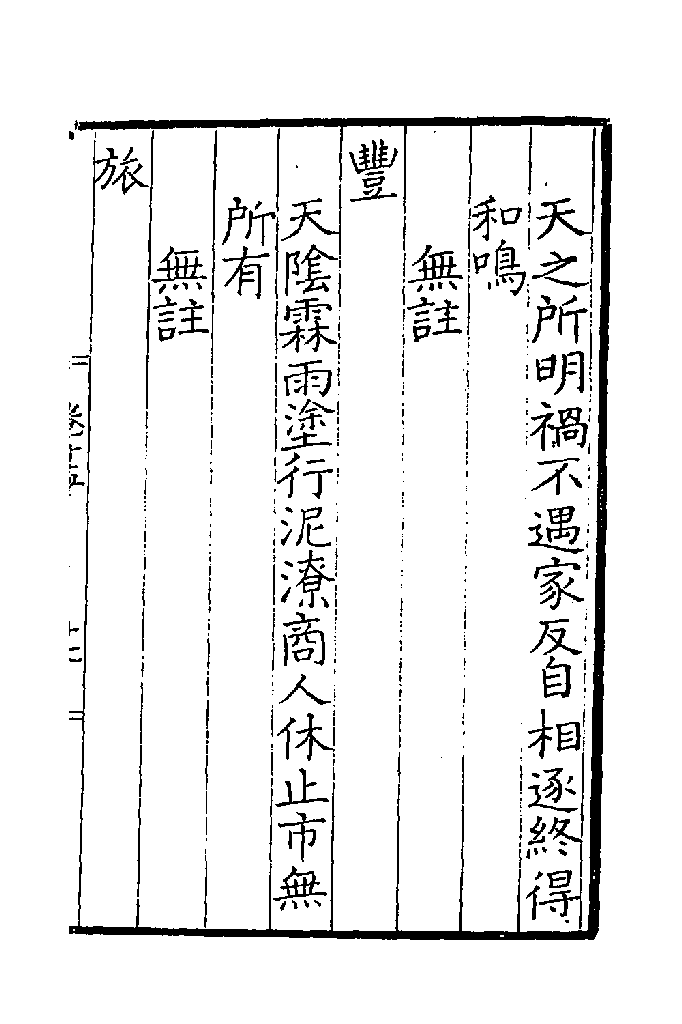 天之所明禍不遇家反自相逐終得
和鳴
無註
豐
天陰霖雨塗行泥潦商人休止市無
所有
無註
旅